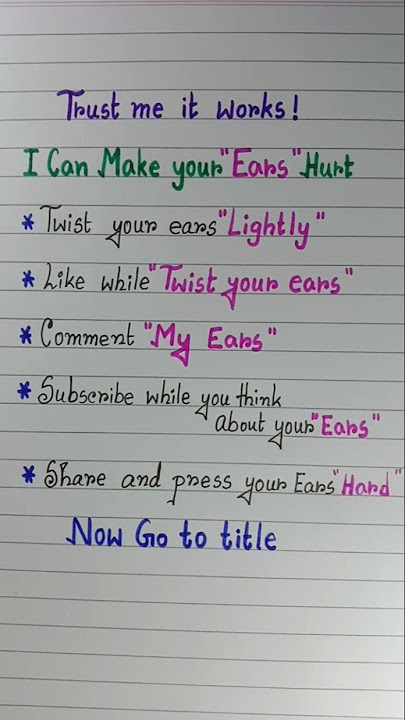 Trust me it works!
I Can Make your "Ears" Hurt
* Twist your ears "Lightly"
* Like while "Twist your ears"
* Comment "My Ears"
* Subscribe while you think
about your "Ears"
* Share and press your Ears "Hard"
Now Go to title